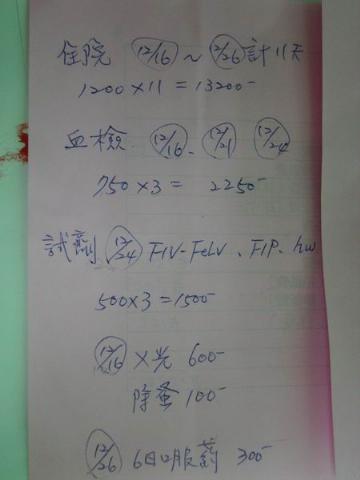 住院 12/16 ~ 12/26 計11天
1200×11=13200-
血檢 12/16、12/21 12/24
750×3= 2250-
試劑 12/24 FIV-FeLV、FIP、hw
500×3=1500-
12/16 X光 600-
除蚤 100-
12/26 6日口服藥 300-